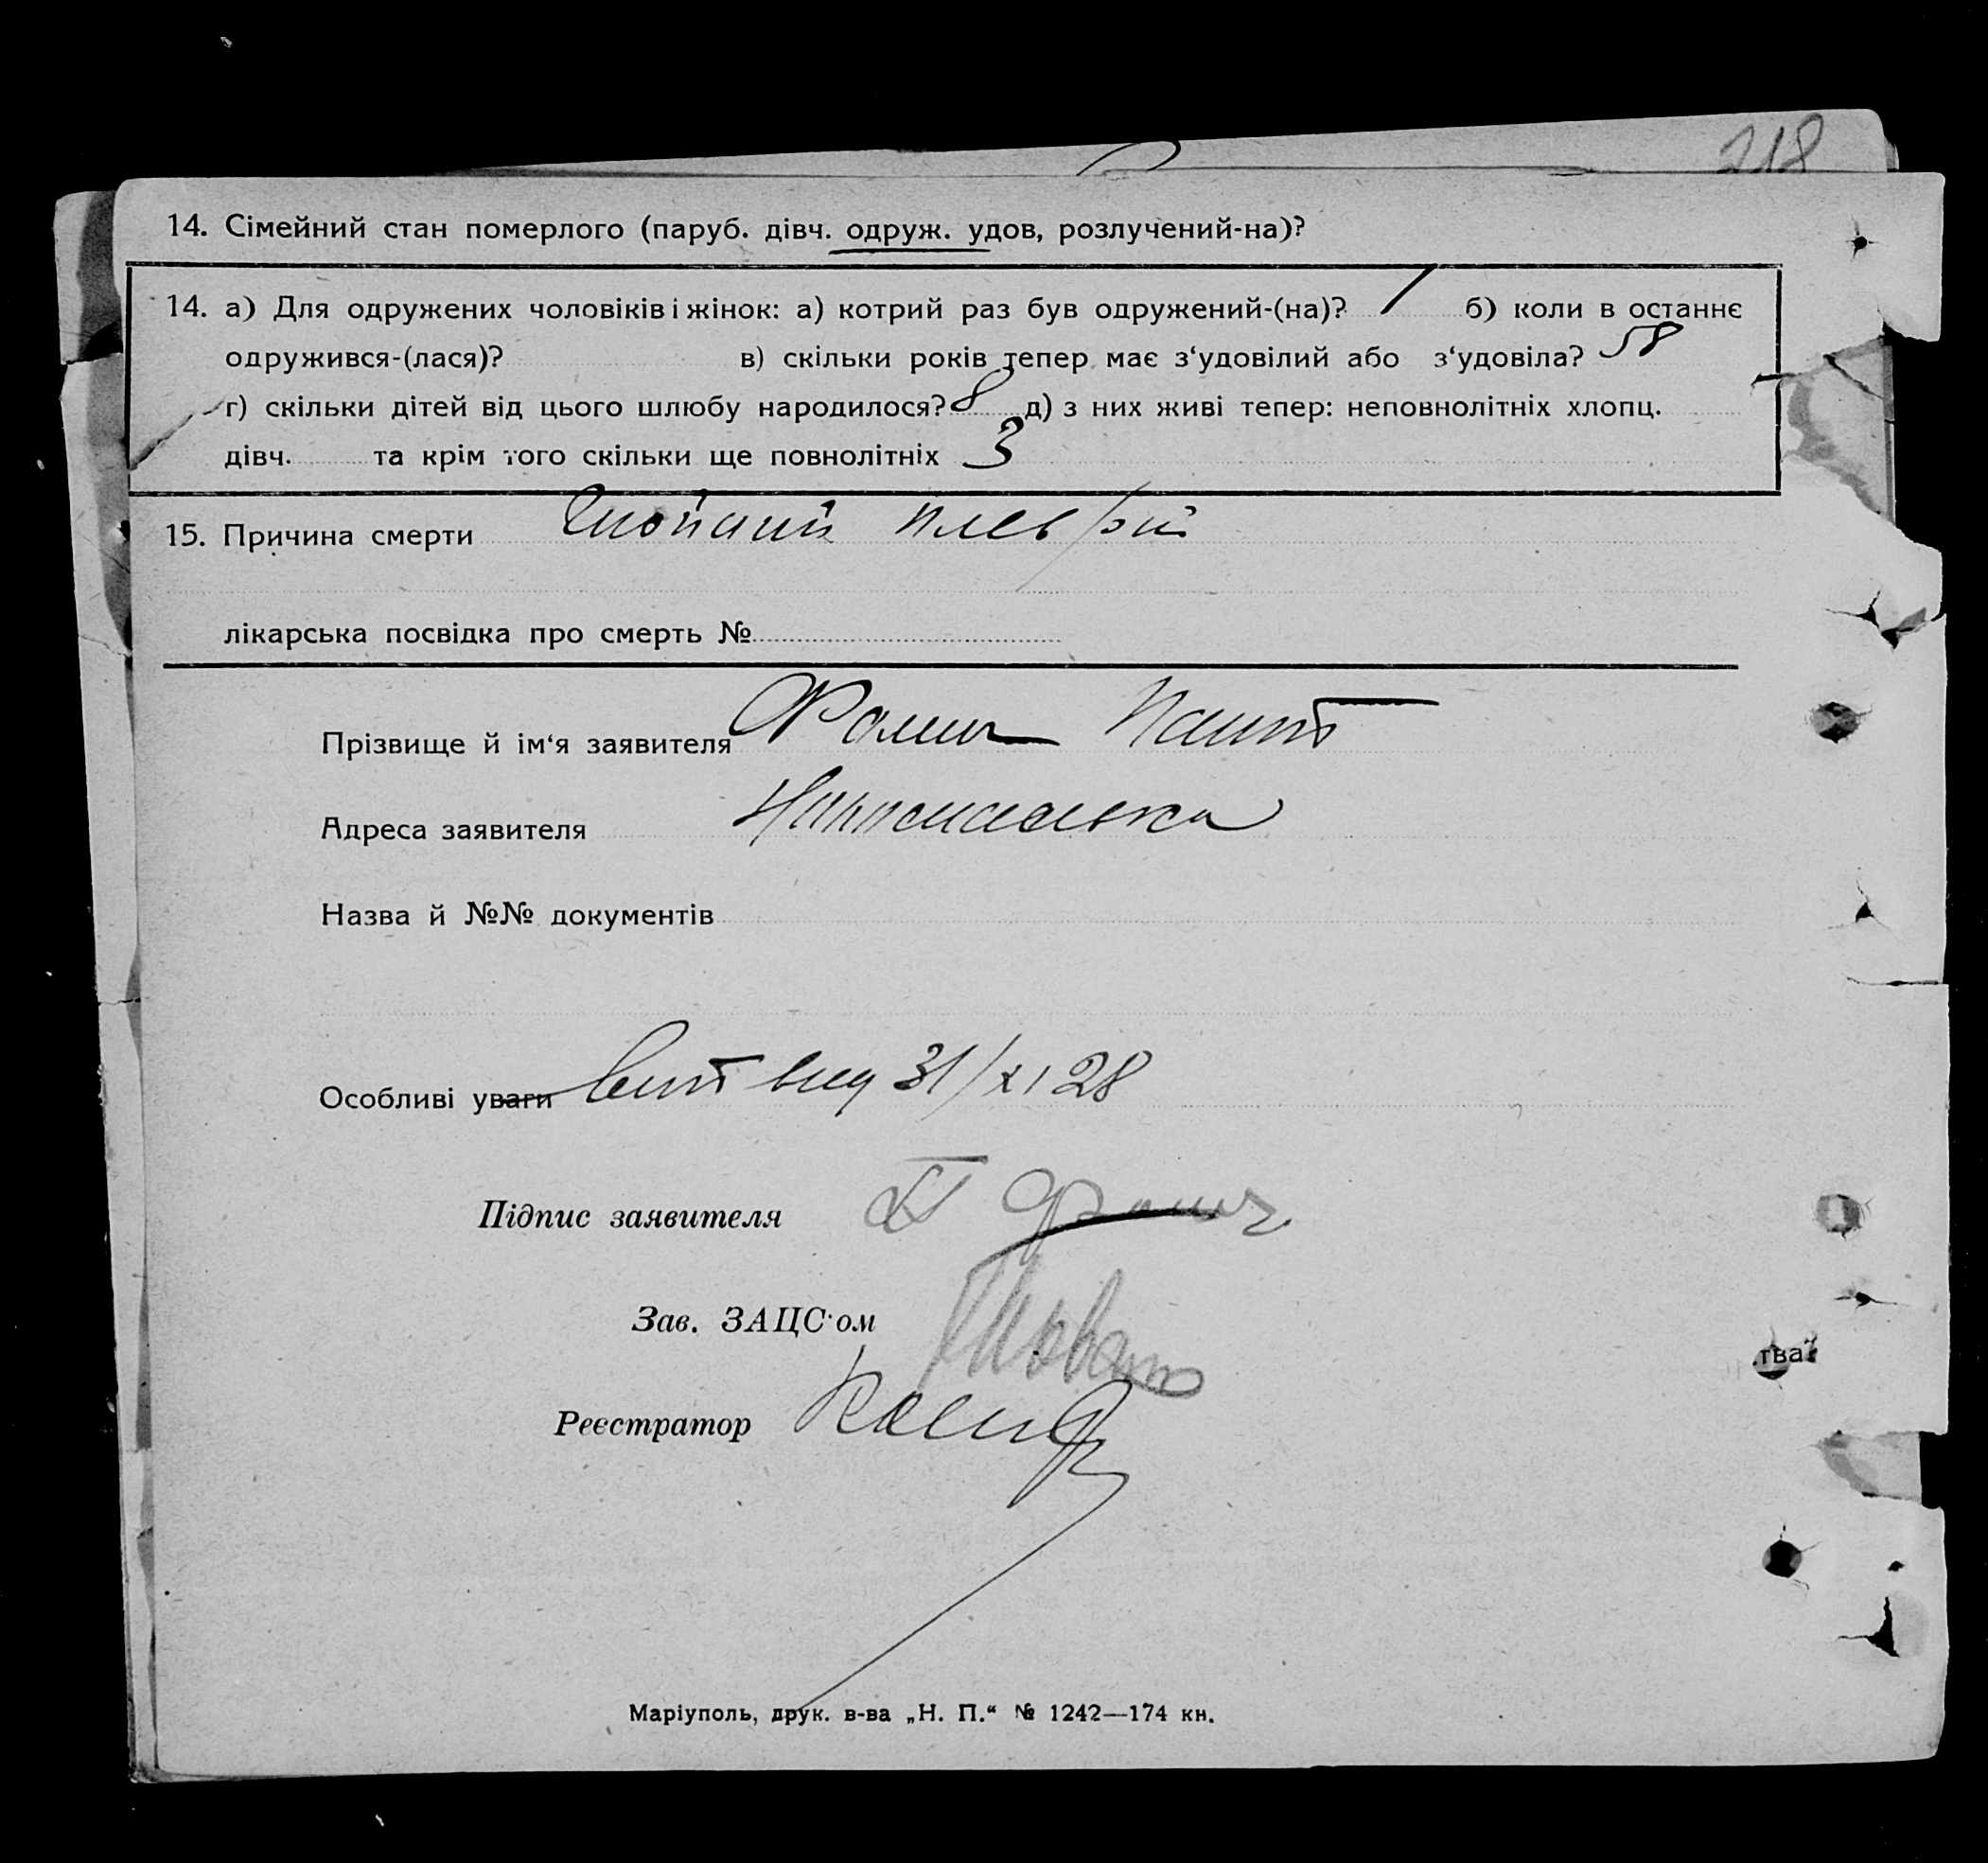 218
14. Сімейний стан померлого (паруб. дівч. одруж. удов, розлучений-на)?
14. а) Для одружених чоловіків і жінок: а) котрий раз був одружений-(на)? 1 б) коли в останнє
одружився-(лася)? в) скільки років тепер має з‘удовілий або з‘удовіла? 58
г) скільки дітей від цього шлюбу народилося? 8 д) з них живі тепер: неповнолітніх хлопц.
дівч. та крім того скільки ще повнолітніх 3
15. Причина смерти Гнойний плеврит
лікарська посвідка про смерть №
Прізвище й ім‘я заявителя
Адреса заявителя
Назва й №№ документів
Особливі уваги 31/XI 28
Підпис заявителя
Зав. ЗАЦС‘ом
тва
Реєстратор
Маріуполь, друк. в-ва „Н. П.“ № 1242—174 кн.